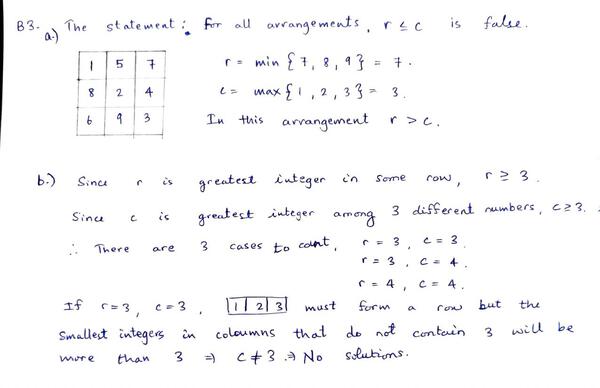 B3. a.) The statement : for all arrangements, r ≤ c is false.
1 5 7
8 2 4
6 9 3
r = min {7, 8, 9} = 7.
c = max {1, 2, 3} = 3.
In this arrangement r > c.
b.) Since r is greatest integer in some row, r ≥ 3.
Since c is greatest integer among 3 different numbers, c ≥ 3.
∴ There are 3 cases to count, r = 3, c = 3.
r = 3, c = 4.
r = 4, c = 4.
If r = 3, c = 3, 1 2 3 must form a row but the
smallest integers in coloumns that do not contain 3 will be
more than 3 ⇒ c ≠ 3 ⇒ No solutions.